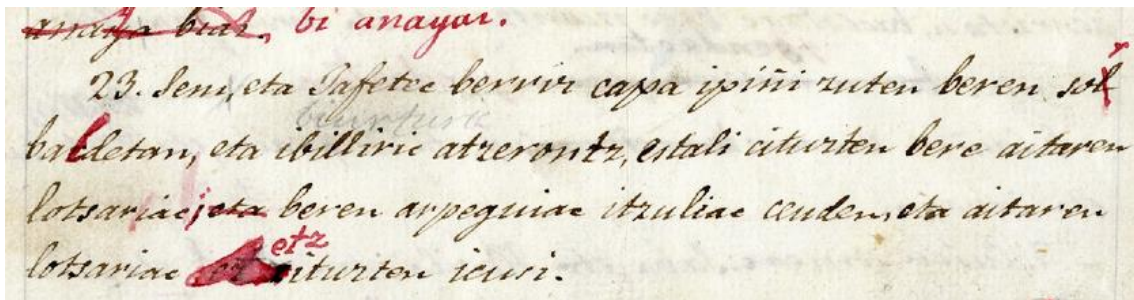 anaya biai, bi anayai.
23. Sem, eta Jafetec berriz capa ipiñi zuten beren sol
biurturic
baeletan, eta ibilliric atzerontz, estali cituzten bere aitaren
lotsariac; eta beren arpeguiac itzuliac ceuden, eta aitaren
etz
lotsariac cituzten icusi.